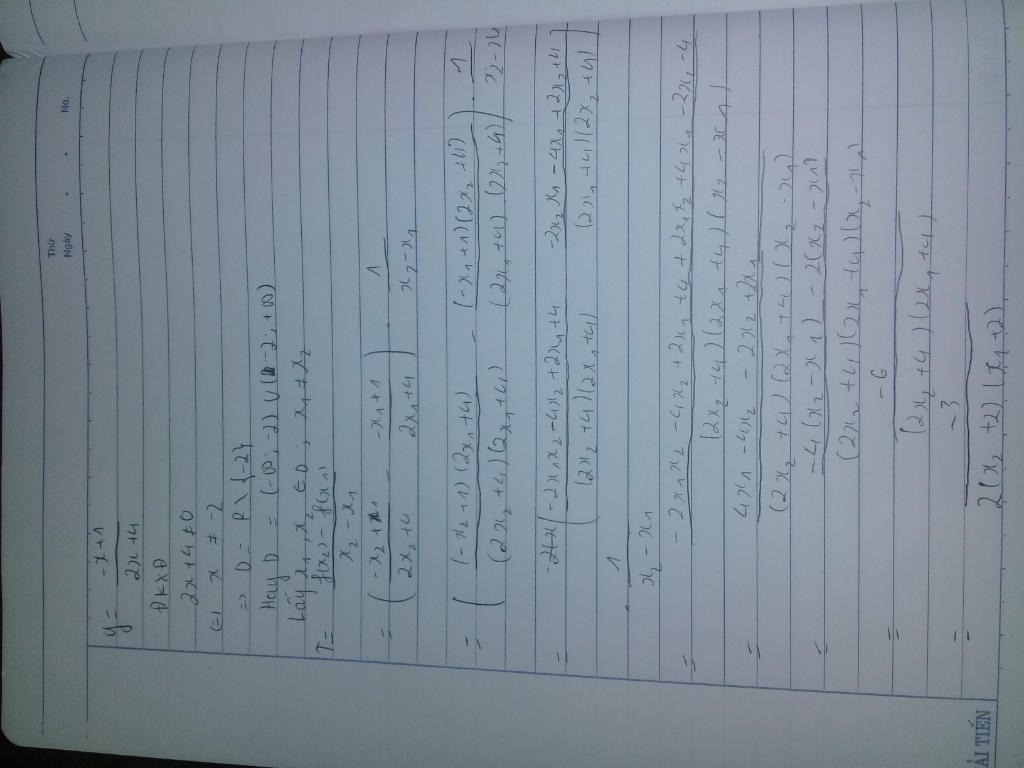 Thứ
Ngày . . No.
y = -x+1 / 2x+4
ĐKXĐ
2x+4 ≠ 0
⇔ x ≠ -2
=> D = R \ {-2}
Hay D = (-∞; -2) ∪ (-2; +∞)
Lấy x1, x2 ∈ D, x1 ≠ x2
T = f(x2) - f(x1) / x2 - x1
= ( -x2+1 / 2x2+4 - -x1+1 / 2x1+4 ) . 1 / x2-x1
= [ (-x2+1)(2x1+4) / (2x2+4)(2x1+4) - (-x1+1)(2x2+4) / (2x1+4).(2x2+4) ] . 1 / x2-x1
= ( -2x1x2-4x2+2x1+4 / (2x2+4)(2x1+4) - -2x2x1-4x1+2x2+4 / (2x1+4)(2x2+4) )
. 1 / x2-x1
= -2x1x2-4x2+2x1+4+2x1x2+4x1-2x2-4 / (2x2+4)(2x1+4)(x2-x1)
= 4x1-4x2-2x2+2x1 / (2x2+4)(2x1+4)(x2-x1)
= -4(x2-x1)-2(x2-x1) / (2x2+4)(2x1+4)(x2-x1)
= -6 / (2x2+4)(2x1+4)
= -3 / 2(x2+2)(x1+2)
ẢI TIẾN